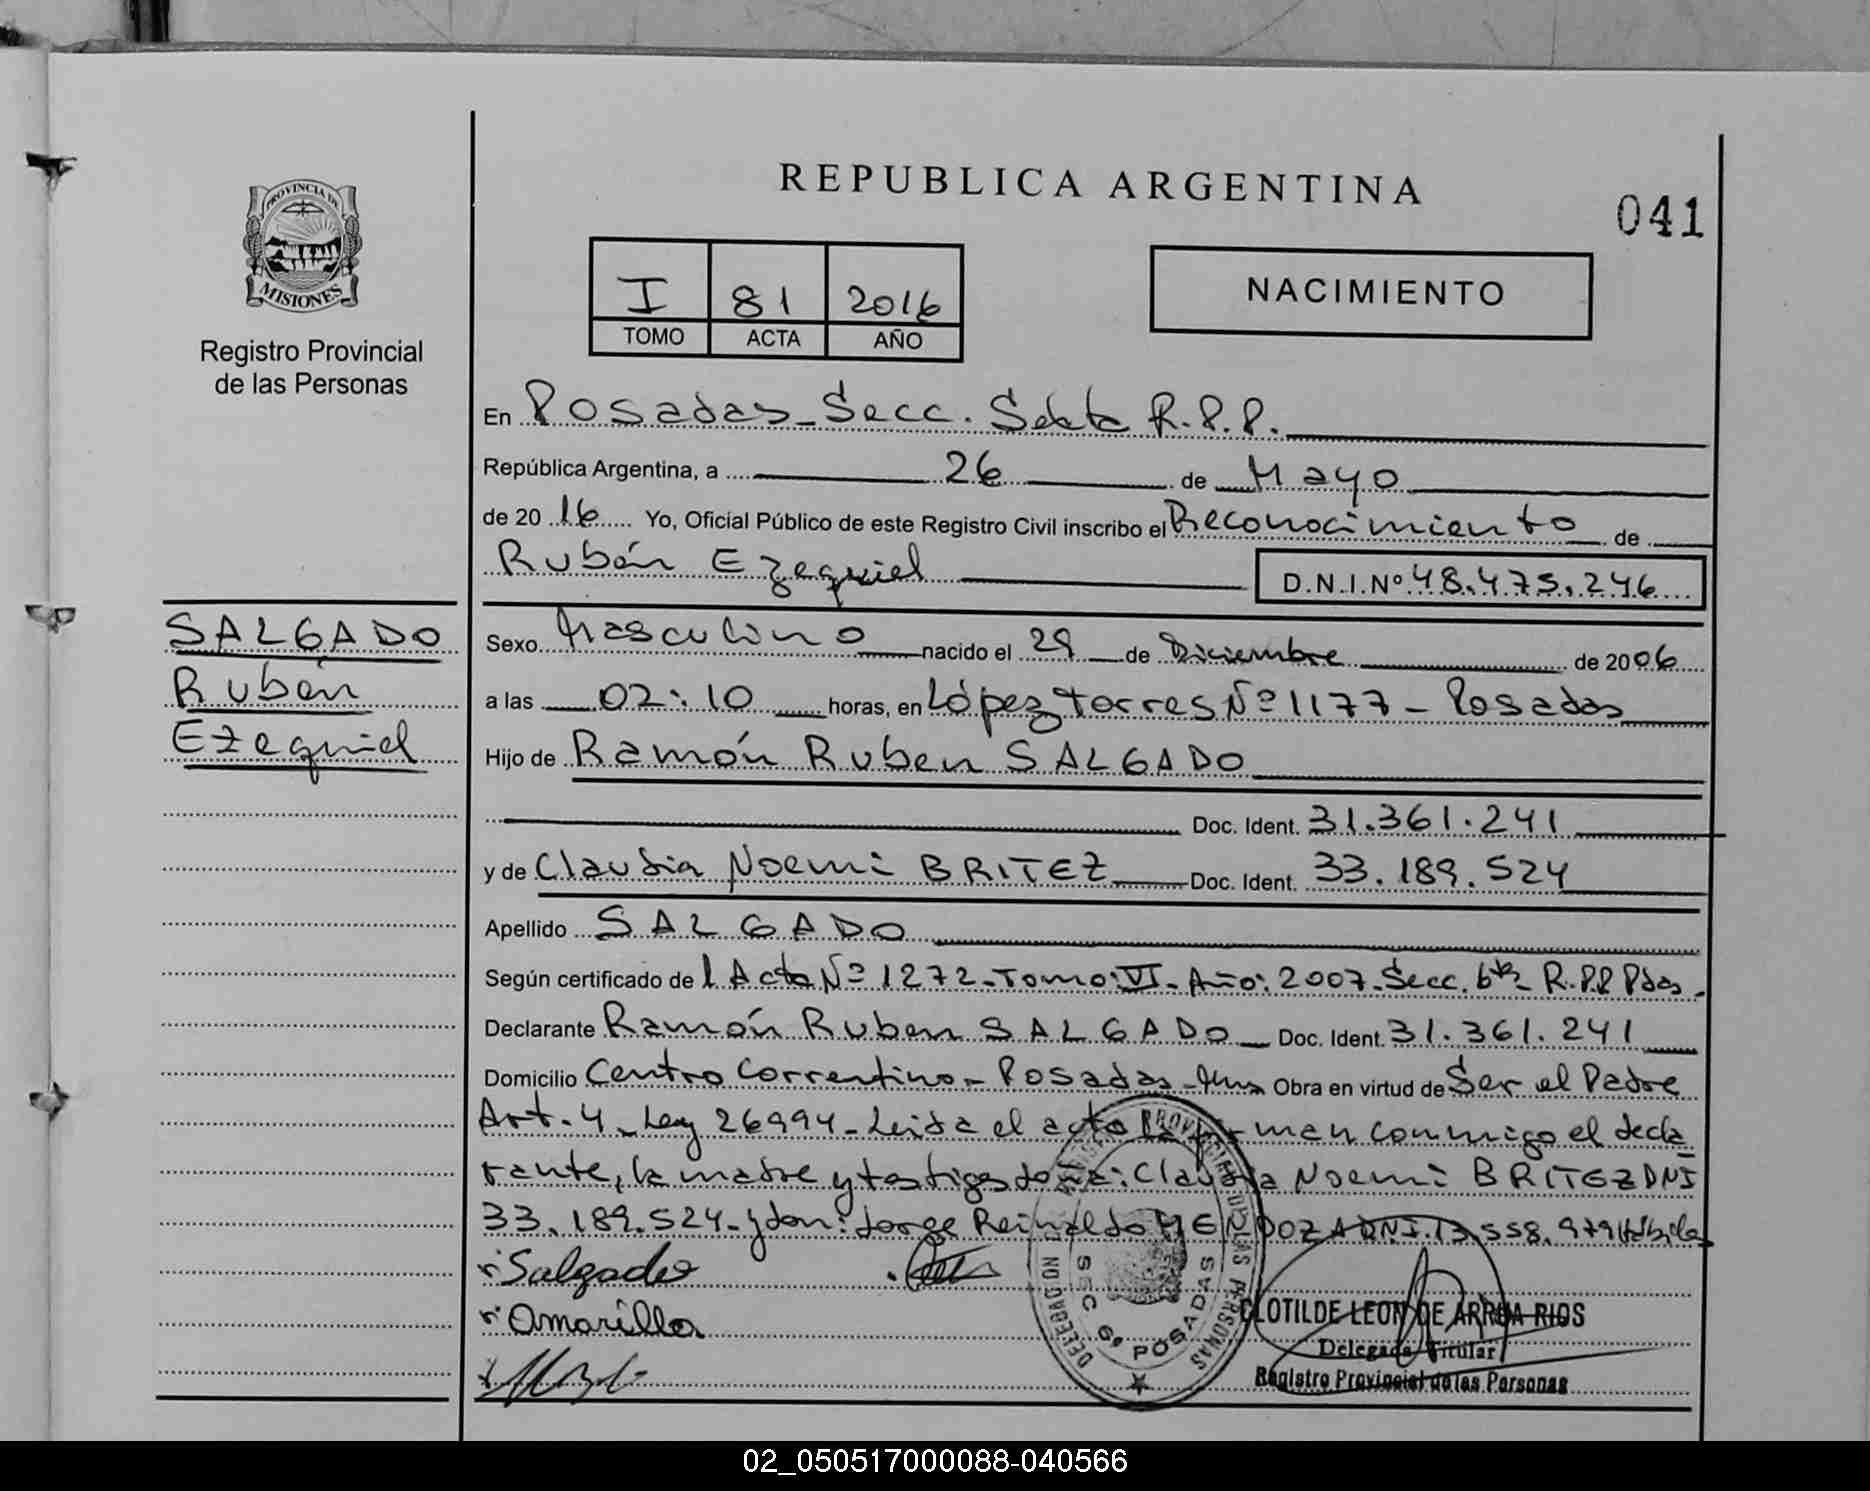 REPUBLICA ARGENTINA
041
PROVINCIA DE
MISIONES
Registro Provincial
de las Personas
I 81 2016
TOMO ACTA AÑO
NACIMIENTO
En Posadas_Secc. Sexta R.P.P.
República Argentina, a 26 de Mayo
de 2016 Yo, Oficial Público de este Registro Civil inscribo el Reconocimiento de
Rubén Ezequiel D.N.I.Nº 48.475.246
SALGADO
Rubén
Ezequiel
Sexo Masculino nacido el 29 de Diciembre de 2006
a las 02:10 horas, en López Torres Nº 1177 - Posadas
Hijo de Ramón Ruben SALGADO
Doc. Ident. 31.361.241
y de Claudia Noemi BRITEZ Doc. Ident. 33.189.524
Apellido SALGADO
Según certificado del Acta Nº 1272-Tomo:VI-Año:2007-Secc. 6ta R.P.P Pdas.
Declarante Ramón Ruben SALGADO Doc. Ident. 31.361.241
Domicilio Centro Correntino - Posadas - Obra en virtud de Ser el Padre
Art. 4 - Ley 26994 - Leida el acta la firman conmigo el decla
rante, la madre y testigos doña: Claudia Noemi BRITEZ DNI
33.189.524 - y don: Jorge Reinaldo MENDOZA DNI. 13.558.979 Hábiles
Salgado
Amarilla
REGISTRO PROVINCIAL DE LAS PERSONAS
DELEGACION
SEC 6º POSADAS
CLOTILDE LEON DE ARRUA RIOS
Delegada Titular
Registro Provincial de las Personas
02_050517000088-040566